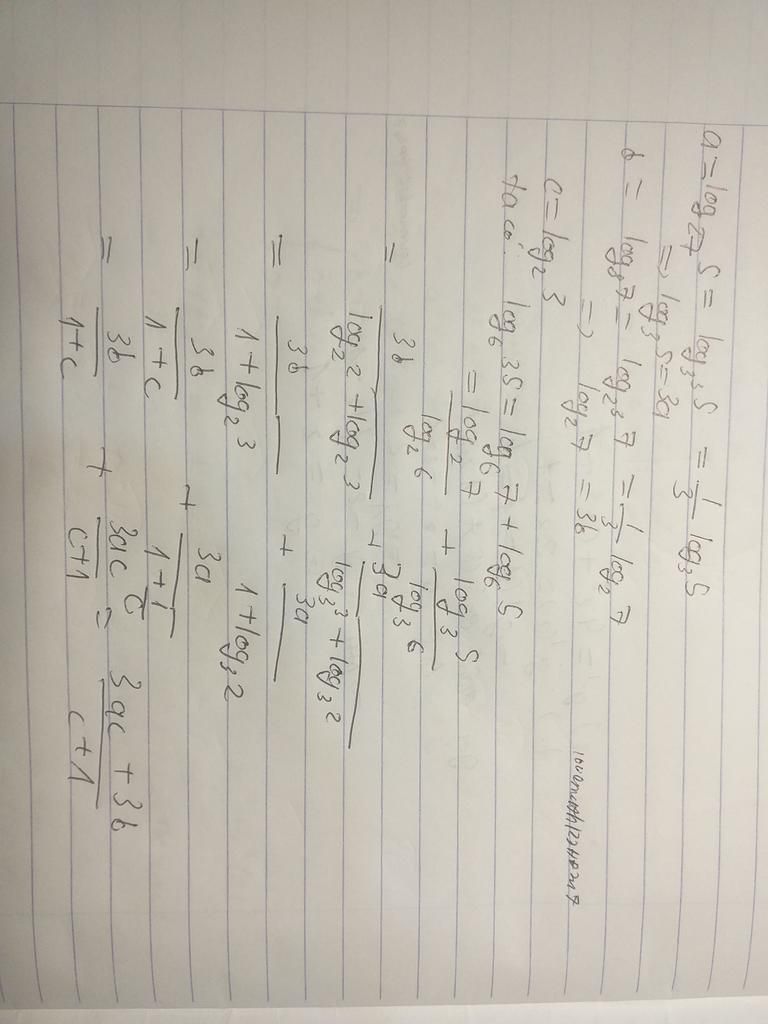 a = log₂₇ 5 = log₃³ 5 = 1/3 log₃ 5
=> log₃ 5 = 3a
b = log₈ 7 = log₂³ 7 = 1/3 log₂ 7
=> log₂ 7 = 3b
c = log₂ 3
ta có: log₆ 35 = log₆ 7 + log₆ 5
= log₂ 7 / log₂ 6 + log₃ 5 / log₃ 6
= 3b / (log₂ 2 + log₂ 3) + 3a / (log₃ 3 + log₃ 2)
= 3b / (1 + log₂ 3) + 3a / (1 + log₃ 2)
= 3b / (1 + c) + 3a / (1 + 1/c)
= 3b / (1 + c) + 3ac / (c + 1) = (3ac + 3b) / (c + 1)